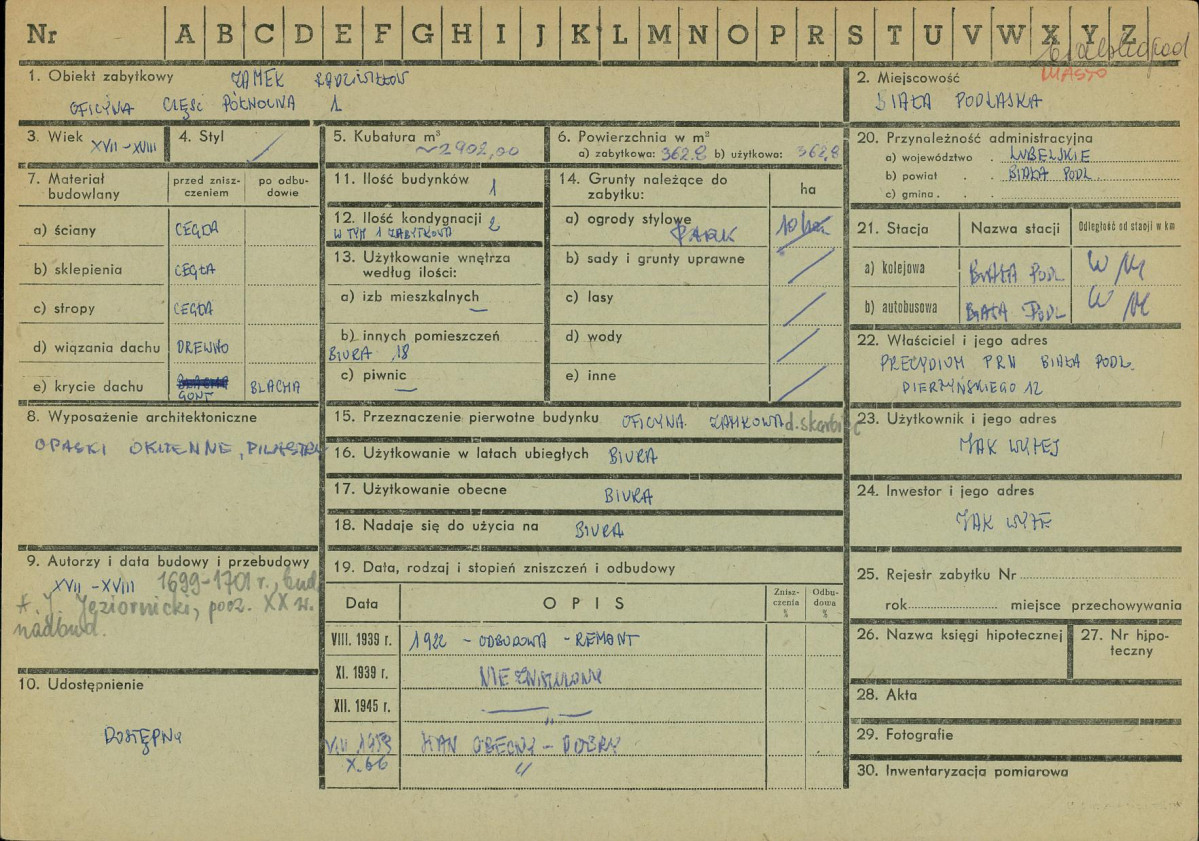 Nr A B C D E F G H I J K L M N O P R S T U V W X Y Z
MIASTO
1. Obiekt zabytkowy ZAMEK RADZIWIŁŁÓW
OFICYNA CZĘŚĆ PÓŁNOCNA 1
2. Miejscowość
BIAŁA PODLASKA
3. Wiek XVII-XVIII
4. Styl
5. Kubatura m³
~2902,00
6. Powierzchnia w m²
a) zabytkowa: 362.8 b) użytkowa: 362,8
20. Przynależność administracyjna
a) województwo . LUBELSKIE
b) powiat . . BIAŁA PODL.
c) gmina .
7. Materiał budowlany
przed znisz-
czeniem
po odbu-
dowie
a) ściany CEGŁA
b) sklepienia CEGŁA
c) stropy CEGŁA
d) wiązania dachu DREWNO
e) krycie dachu BLACHA GONT BLACHA
11. Ilość budynków 1
12. Ilość kondygnacji 2
W TYM 1 ZABYTKOWA
13. Użytkowanie wnętrza
według ilości:
a) izb mieszkalnych —
b) innych pomieszczeń
BIURA 18
c) piwnic —
14. Grunty należące do
zabytku:
ha
a) ogrody stylowe
PARK 10 ha
b) sady i grunty uprawne
c) lasy
d) wody
e) inne
21. Stacja Nazwa stacji Odległość od stacji w km
a) kolejowa BIAŁA PODL W M
b) autobusowa BIAŁA PODL W M
22. Właściciel i jego adres
PREZYDIUM PRN BIAŁA PODL.
PIERZYŃSKIEGO 12
8. Wyposażenie architektoniczne
OPASKI OKIENNE, PILASTRY
15. Przeznaczenie pierwotne budynku OFICYNA ZAMKOWA d. skarbiec
16. Użytkowanie w latach ubiegłych BIURA
17. Użytkowanie obecne BIURA
18. Nadaje się do użycia na BIURA
23. Użytkownik i jego adres
JAK WYŻEJ
24. Inwestor i jego adres
JAK WYŻE
9. Autorzy i data budowy i przebudowy
XVII-XVIII 1699-1701 r., bud.
A. J. Jeziornicki, pocz. XX w.
nadbud.
10. Udostępnienie
DOSTĘPNY
19. Data, rodzaj i stopień zniszczeń i odbudowy
Data OPIS Znisz-
czenia
% Odbu-
dowa
%
VIII. 1939 r. 1922 - ODBUDOWA - REMONT
XI. 1939 r. NIEZNISZCZONY
XII. 1945 r. — „ —
VIII 1959 STAN OBECNY - DOBRY
X. 66 „
25. Rejestr zabytku Nr
rok miejsce przechowywania
26. Nazwa księgi hipotecznej
27. Nr hipo-
teczny
28. Akta
29. Fotografie
30. Inwentaryzacja pomiarowa